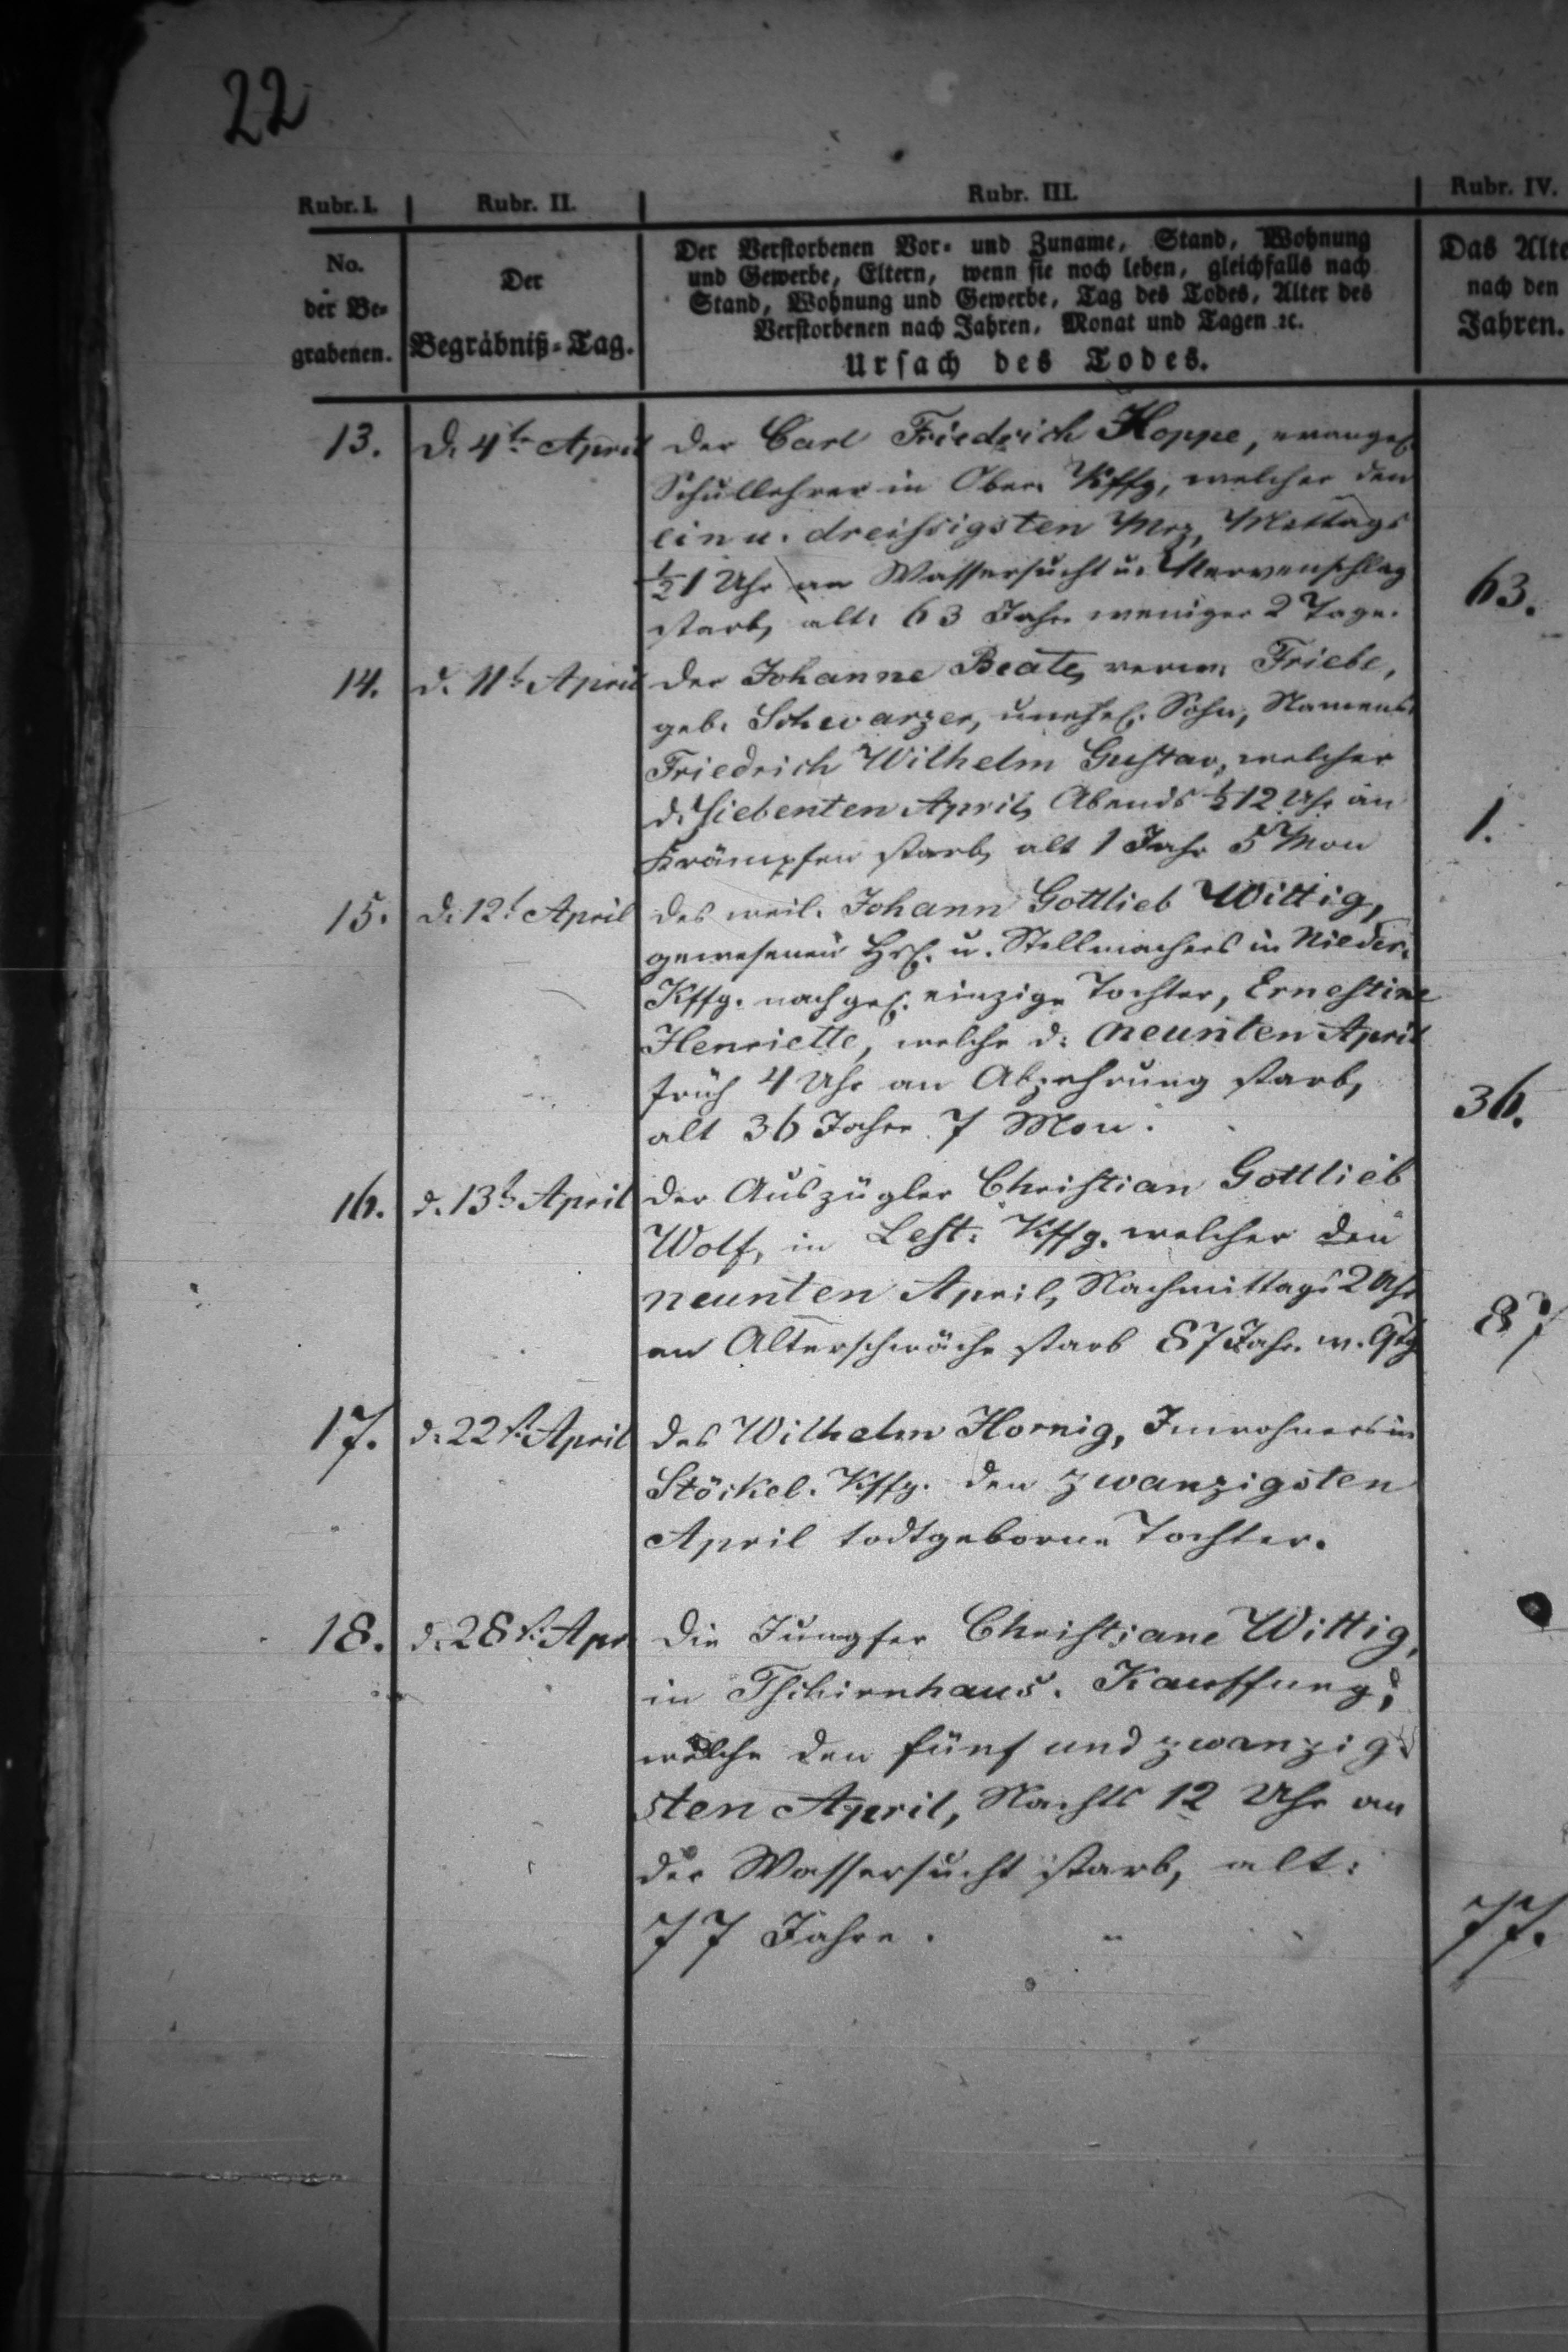 22
Rubr. I. Rubr. II. Rubr. III. Rubr. IV.
No.
der Be-
grabenen.
Der
Begräbniß-Tag.
Der Verstorbenen Vor- und Zuname, Stand, Wohnung
und Gewerbe, Eltern, wenn sie noch leben, gleichfalls nach
Stand, Wohnung und Gewerbe, Tag des Todes, Alter des
Verstorbenen nach Jahren, Monat und Tagen ꝛc.
Ursach des Todes.
Das Alte
nach den
Jahren.
13. d. 4te April der Carl Friedrich Hoppe, evangel.
Schullehrer in Ober. Kffg, welcher den
ein u. dreißigsten Mrz, Mittags
½1 Uhr an Wassersucht u. Nervenschlag
starb, alt: 63 Jahr weniger 2 Tage. 63.
14. d. 11t April der Johanne Beate, verw. Friebe,
geb. Schwarzer, unehel. Sohn, Namens
Friedrich Wilhelm Gustav, welcher
d. siebenten April, Abends ½12 Uhr an
Krämpfen starb, alt 1 Jahr 5 Mon 1.
15. d. 12t April des weil. Johann Gottlieb Wittig,
gewesenen Hsl. u. Stellmachers in Nieder.
Kffg. nachgel. einzige Tochter, Ernestine
Henriette, welche d. neunten April
früh 4 Uhr an Abzehrung starb,
alt 36 Jahre 7 Mon. 36.
16. d. 13t April der Auszügler Christian Gottlieb
Wolf, in Lest. Kffg. welcher den
neunten April, Nachmittags 2 Uhr
an Alterschwäche starb 87 Jahr. w. 9 Tg 87
17. d. 22t April des Wilhelm Hornig, Inwohners in
Stöckel. Kffg. den zwanzigsten
April todtgeborne Tochter.
18. d. 28t Apr die Jungfer Christiane Wittig,
in Tschirnhaus. Kauffung,
welche den fünf und zwanzig
sten April, Nachts 12 Uhr an
der Wassersucht starb, alt:
77 Jahre. 77.